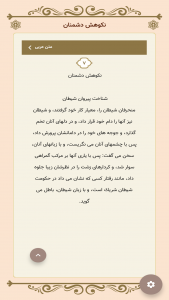 نکوهش دشمنان
متن عربی
۷
نکوهش دشمنان
شناخت پیروان شیطان
منحرفان، شیطان را، معیار کار خود گرفتند، و شیطان
نیز آنها را دام خود قرار داد، و در دلهای آنان تخم
گذارد، و جوجه های خود را در دامانشان پرورش داد،
پس با چشمهای آنان می نگریست، و با زبانهای آنان،
سخن می گفت؛ پس با یاری آنها بر مرکب گمراهی
سوار شد، و کردارهای زشت را در نظرشان زیبا جلوه
داد، مانند رفتار کسی که نشان می داد در حکومت
شیطان شریک است، و با زبان شیطان، باطل می
گوید.